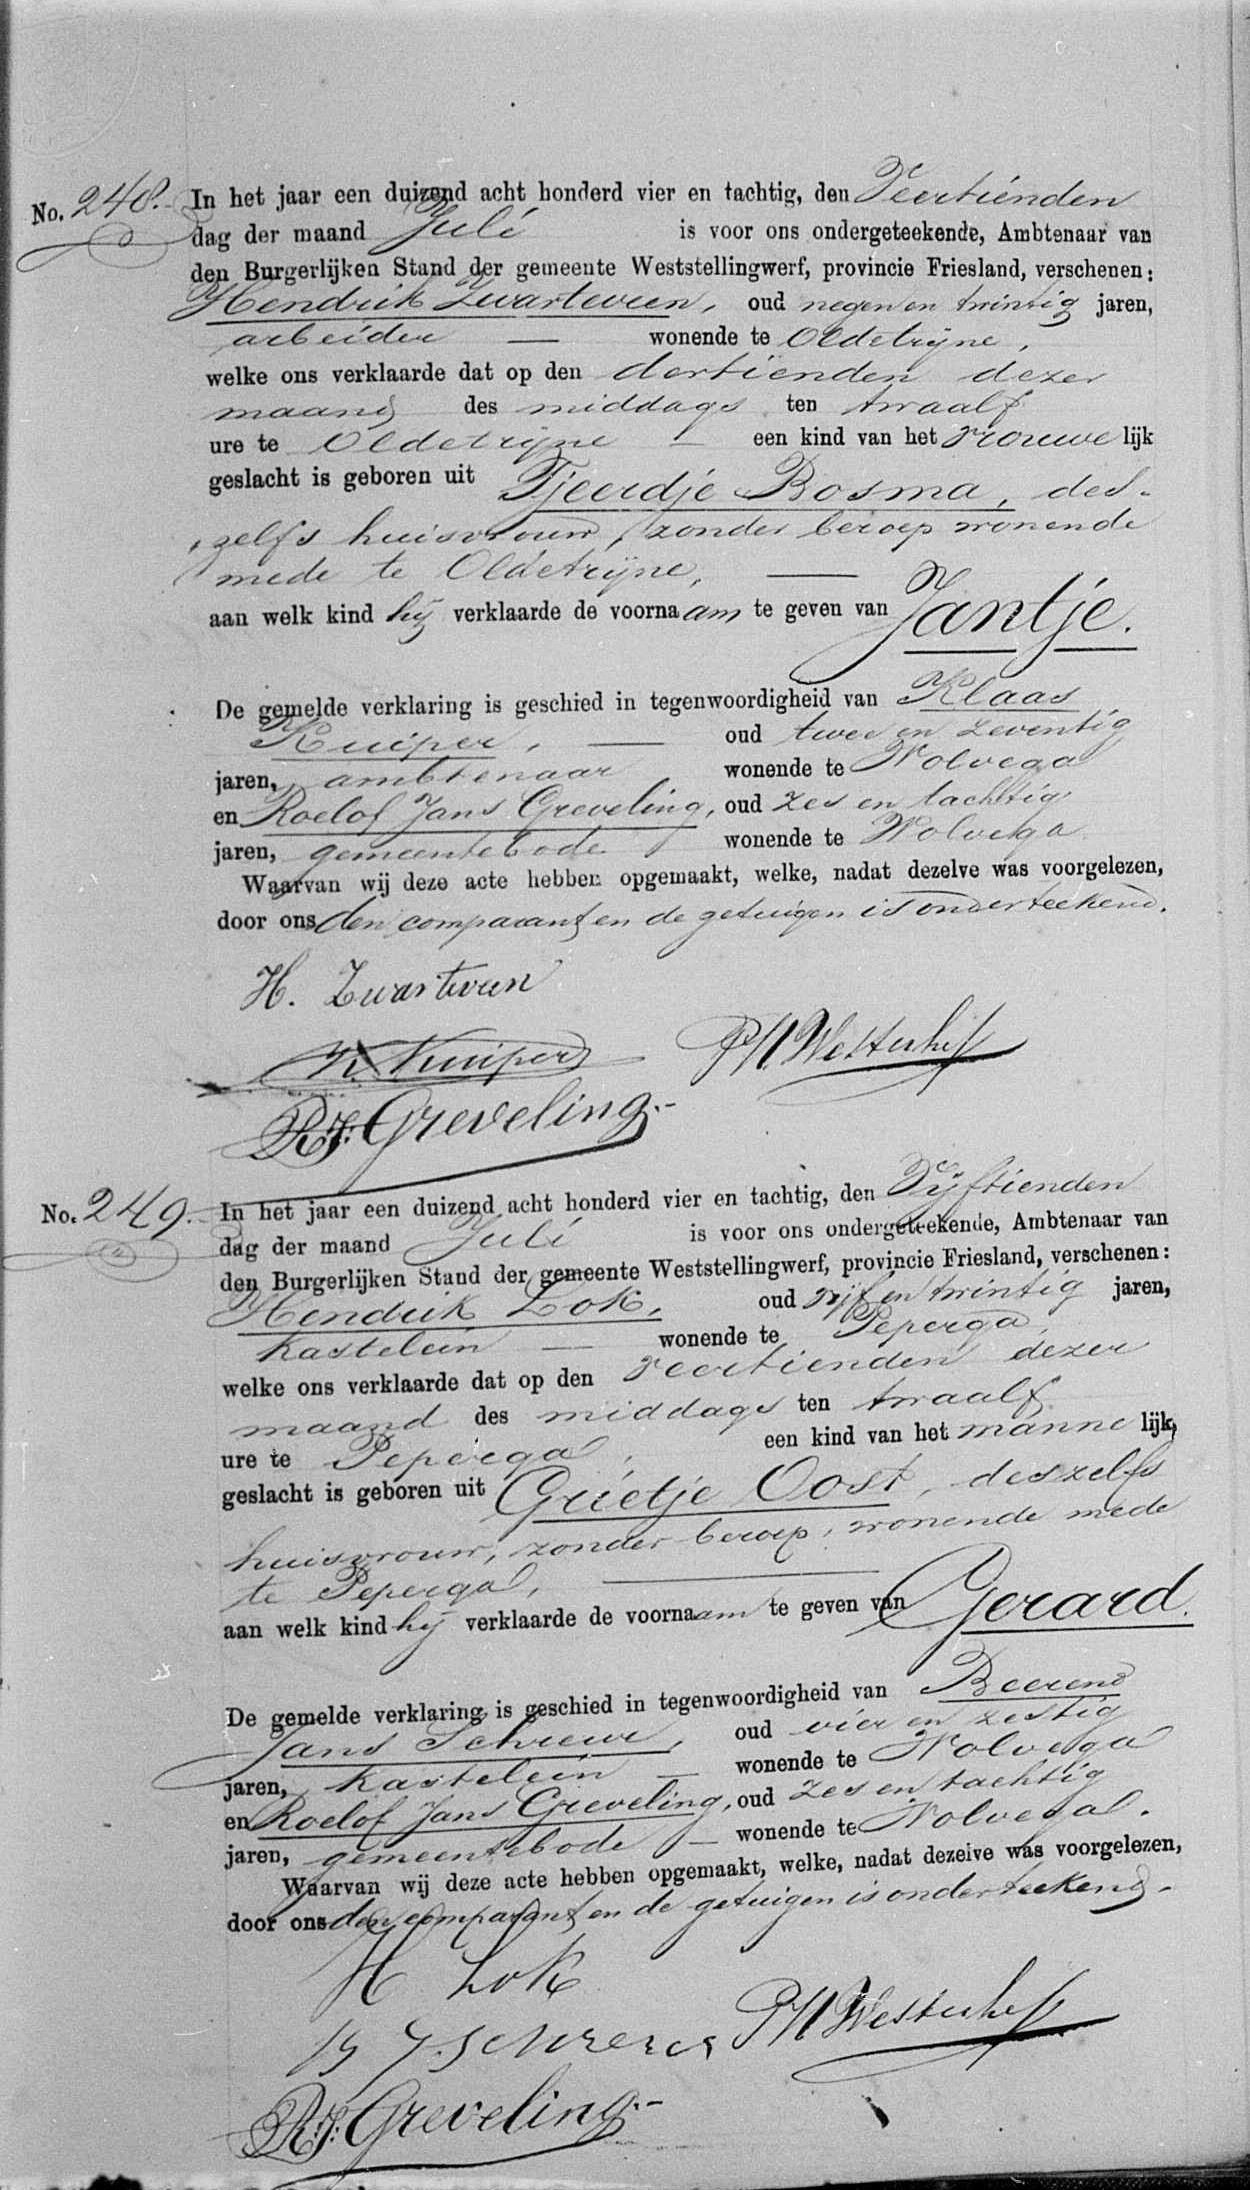 No. 248. In het jaar een duizend acht honderd vier en tachtig, den Veertienden
dag der maand Juli is voor ons ondergeteekende, Ambtenaar van
den Burgerlijken Stand der gemeente Weststellingwerf, provincie Friesland, verschenen:
Hendrik Zwarteveen, oud negen en twintig jaren,
arbeider — wonende te Oldetrijne,
welke ons verklaarde dat op den dertienden dezer
maand des middags ten twaalf
ure te Oldetrijne — een kind van het vrouwelijk
geslacht is geboren uit Tjeerdje Bosma, des-
zelfs huisvrouw, zonder beroep wonende
mede te Oldetrijne, —
aan welk kind hij verklaarde de voornaam te geven van Jantje.
De gemelde verklaring is geschied in tegenwoordigheid van Klaas
Kuiper, — oud twee en zeventig
jaren, ambtenaar wonende te Wolvega
en Roelof Jans Greveling, oud zes en tachtig
jaren, gemeentebode wonende te Wolvega
Waarvan wij deze acte hebben opgemaakt, welke, nadat dezelve was voorgelezen,
door ons den comparant en de getuigen is onderteekend.
H. Zwarteveen
K. Kuiper PH. Westerhof
R.J. Greveling.-
No. 249. In het jaar een duizend acht honderd vier en tachtig, den Vijftienden
dag der maand Juli is voor ons ondergeteekende, Ambtenaar van
den Burgerlijken Stand der gemeente Weststellingwerf, provincie Friesland, verschenen:
Hendrik Lok, oud vijf en twintig jaren,
kastelein — wonende te Peperga,
welke ons verklaarde dat op den veertienden dezer
maand des middags ten twaalf
ure te Peperga, een kind van het mannelijk,
geslacht is geboren uit Grietje Oost, deszelfs
huisvrouw, zonder beroep, wonende mede
te Peperga, —
aan welk kind hij verklaarde de voornaam te geven van Gerard.
De gemelde verklaring is geschied in tegenwoordigheid van Beerend
Jans Schreur, oud vier en zestig
jaren, kastelein — wonende te Wolvega
en Roelof Jans Greveling, oud zes en tachtig
jaren, gemeentebode — wonende te Wolvega.
Waarvan wij deze acte hebben opgemaakt, welke, nadat dezelve was voorgelezen,
door ons den comparant en de getuigen is onderteekend.
H Lok
B J. Schreur PH Westerhof
R.J. Greveling.-